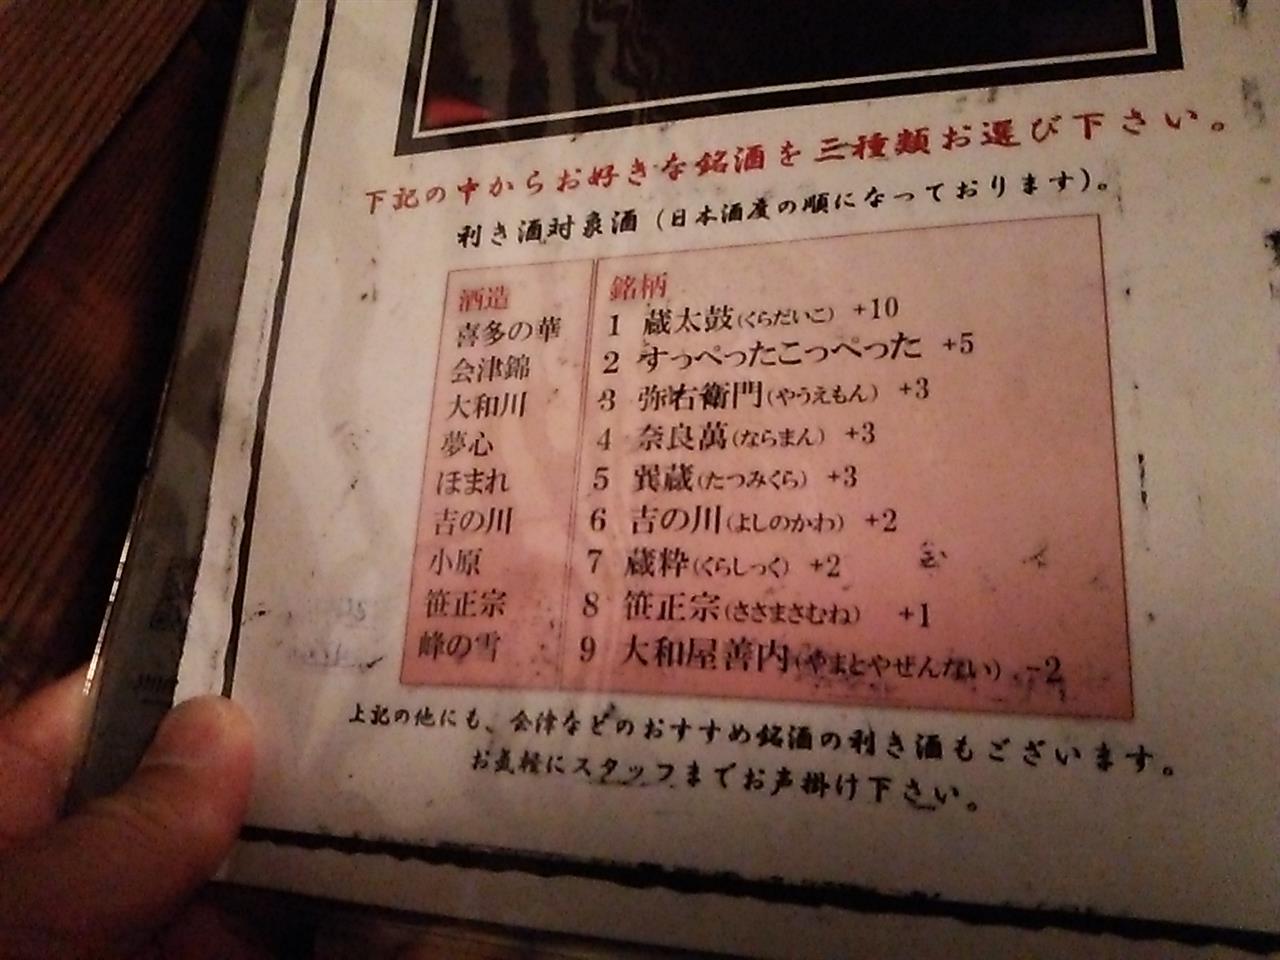 下記の中からお好きな銘酒を三種類お選び下さい。
利き酒対象酒（日本酒度の順になっております）。
酒造 銘柄
喜多の華 1 蔵太鼓（くらだいこ） +10
会津錦 2 すっぺったこっぺった +5
大和川 3 弥右衛門（やうえもん） +3
夢心 4 奈良萬（ならまん） +3
ほまれ 5 巽蔵（たつみくら） +3
吉の川 6 吉の川（よしのかわ） +2
小原 7 蔵粋（くらしっく） +2
笹正宗 8 笹正宗（ささまさむね） +1
峰の雪 9 大和屋善内（やまとやぜんない） -2
上記の他にも、会津などのおすすめ銘酒の利き酒もございます。
お気軽にスタッフまでお声掛け下さい。